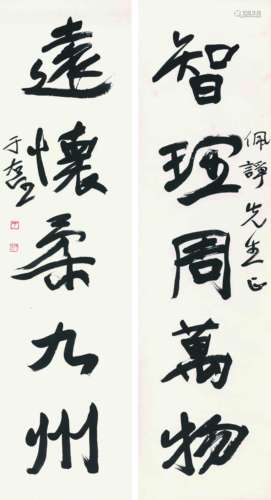 智理周萬物
佩諍先生正
遠懷柔九州
于右任